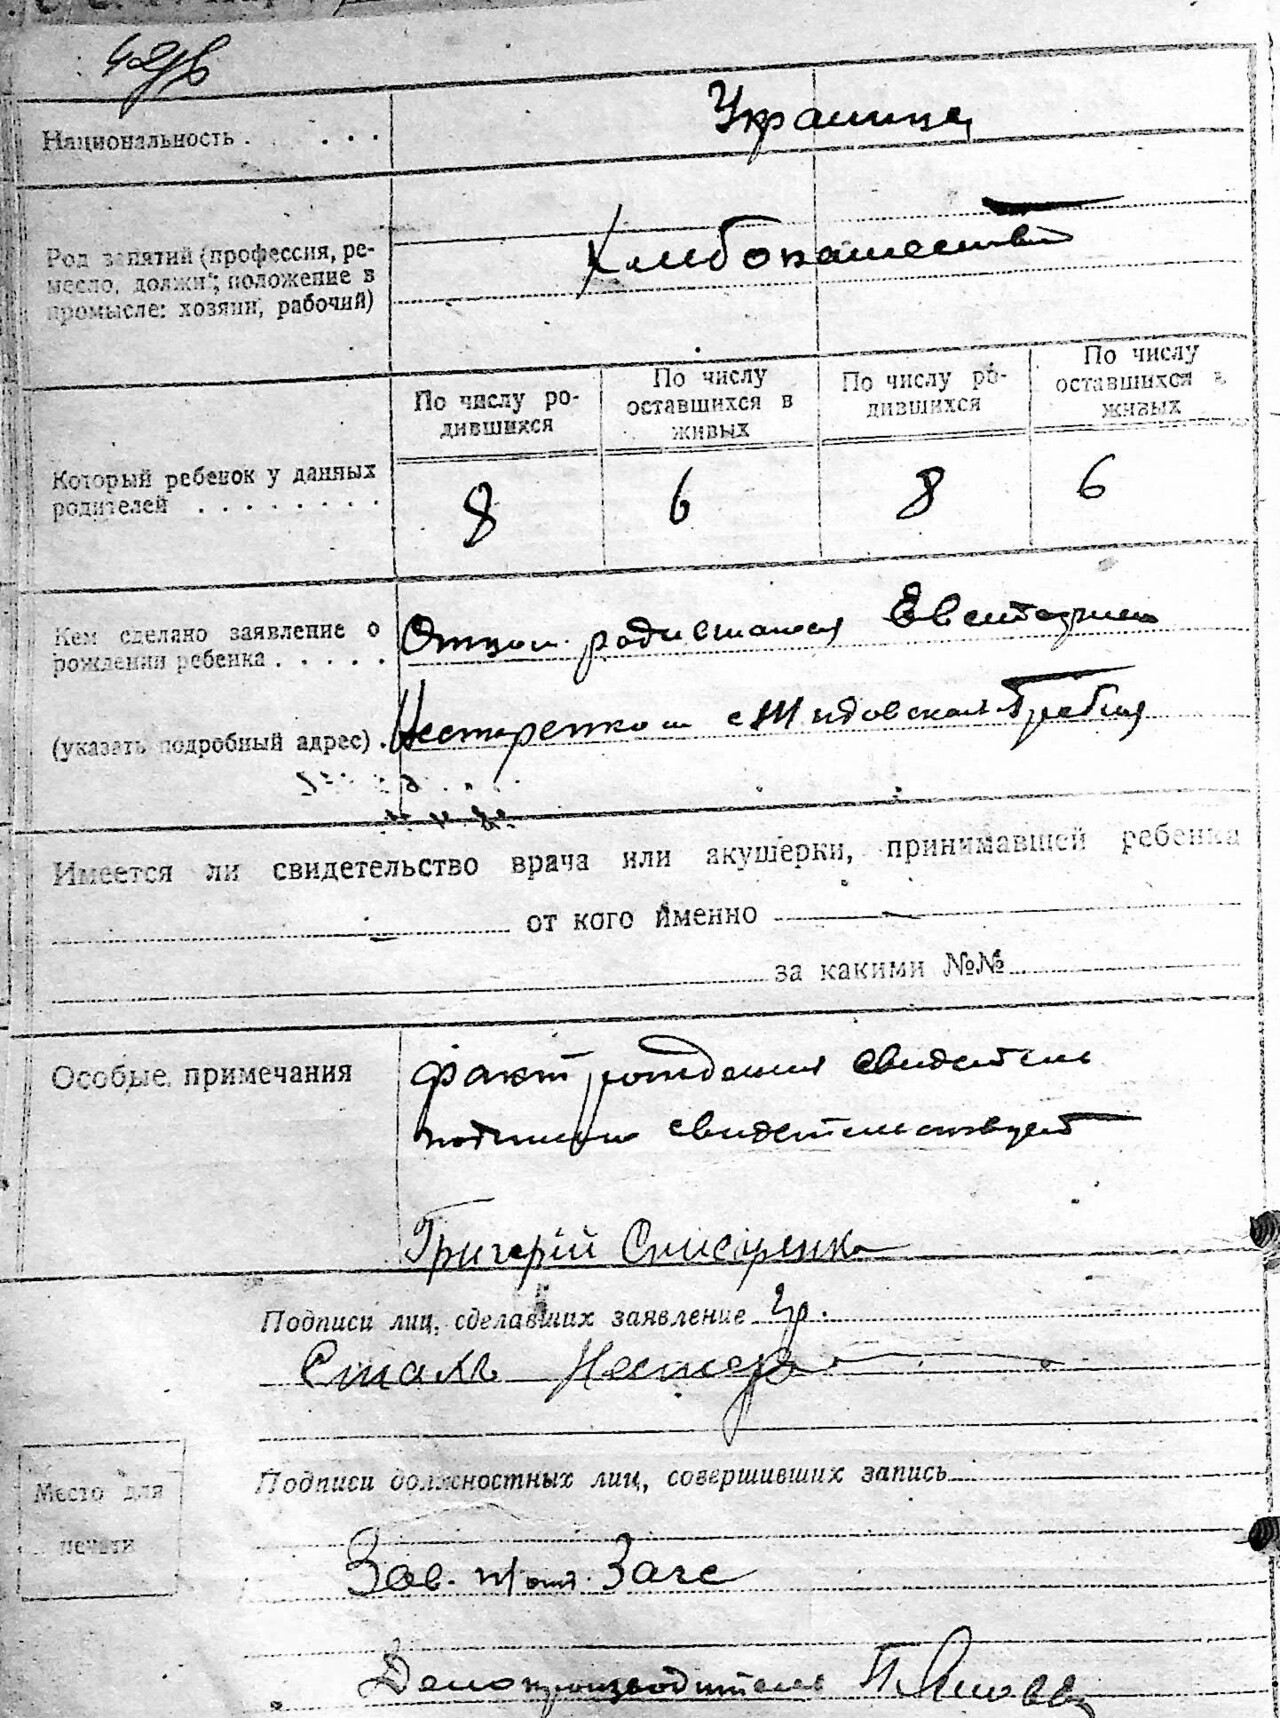 42
Национальность . . . . .
Украинец
Род занятий (профессия, ре-
месло, должн.; положение в
промысле: хозяин, рабочий)
Хлибопашество
По числу ро-
дившихся
По числу
оставшихся в
живых
По числу ро-
дившихся
По числу
оставшихся в
живых
Который ребенок у данных
родителей . . . . . . . .
8 6 8 6
Кем сделано заявление о
рождении ребенка . . . . .
Отцом родившагося
(указать подробный адрес) .
Нестеренком с Жидовская Гребля
Имеется ли свидетельство врача или акушерки, принимавшей ребенка
от кого именно
за какими №№
Особые примечания
факт рождения свидетель
свидетельствует
Григорій Слисаренко
Подписи лиц, сделавших заявление Гр.
Нестер
Подписи должностных лиц, совершивших запись
Место для
печати
Зав. п/отд. Загс
Делопроизводитель